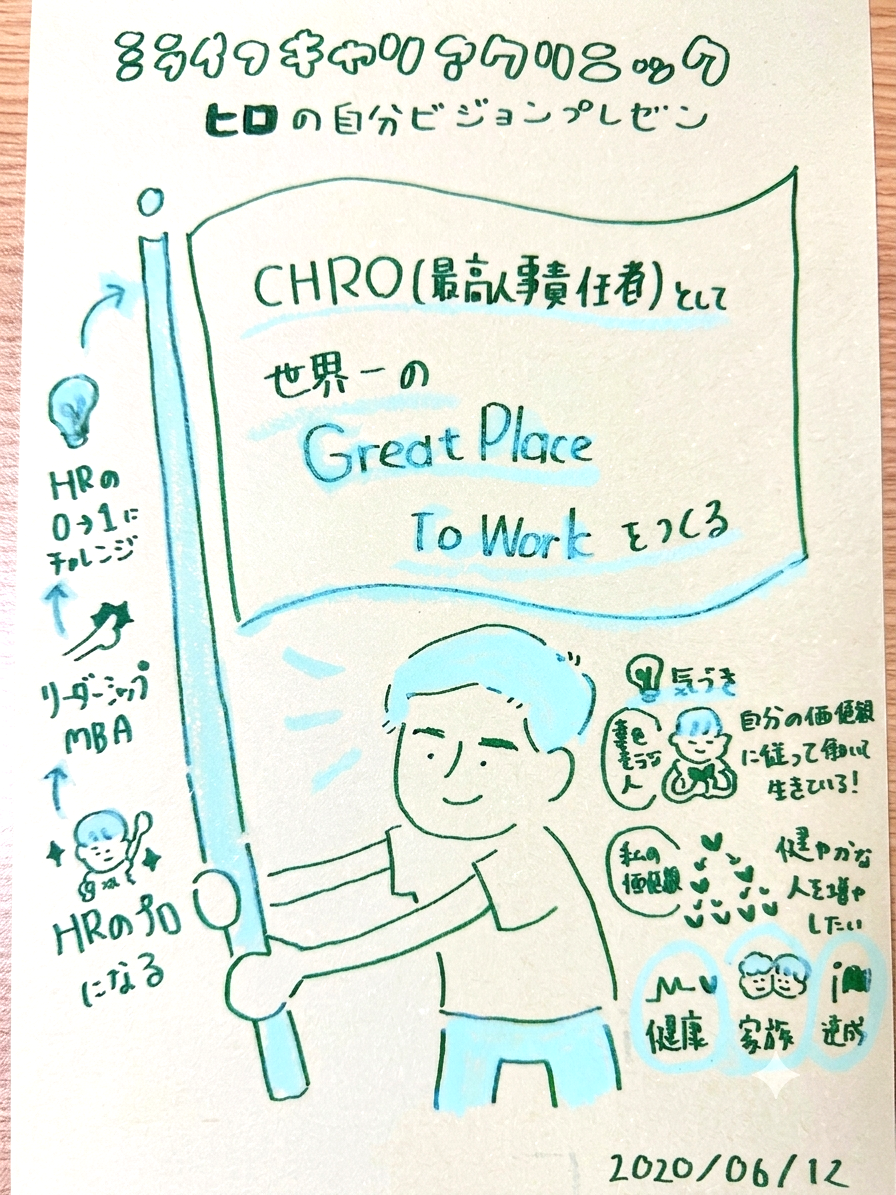 ミライフキャリアクリニック
ヒロの自分ビジョンプレゼン
CHRO(最高人事責任者)として
世界一の
Great Place
To Workをつくる
HRの
0→1に
チャレンジ
リーダーシップ
MBA
HRのプロ
になる
気づき
人
自分の価値観
に従って働いて
生きている!
私の
価値観
健やかな
人を増や
したい
健康
家族
達成
2020/06/12